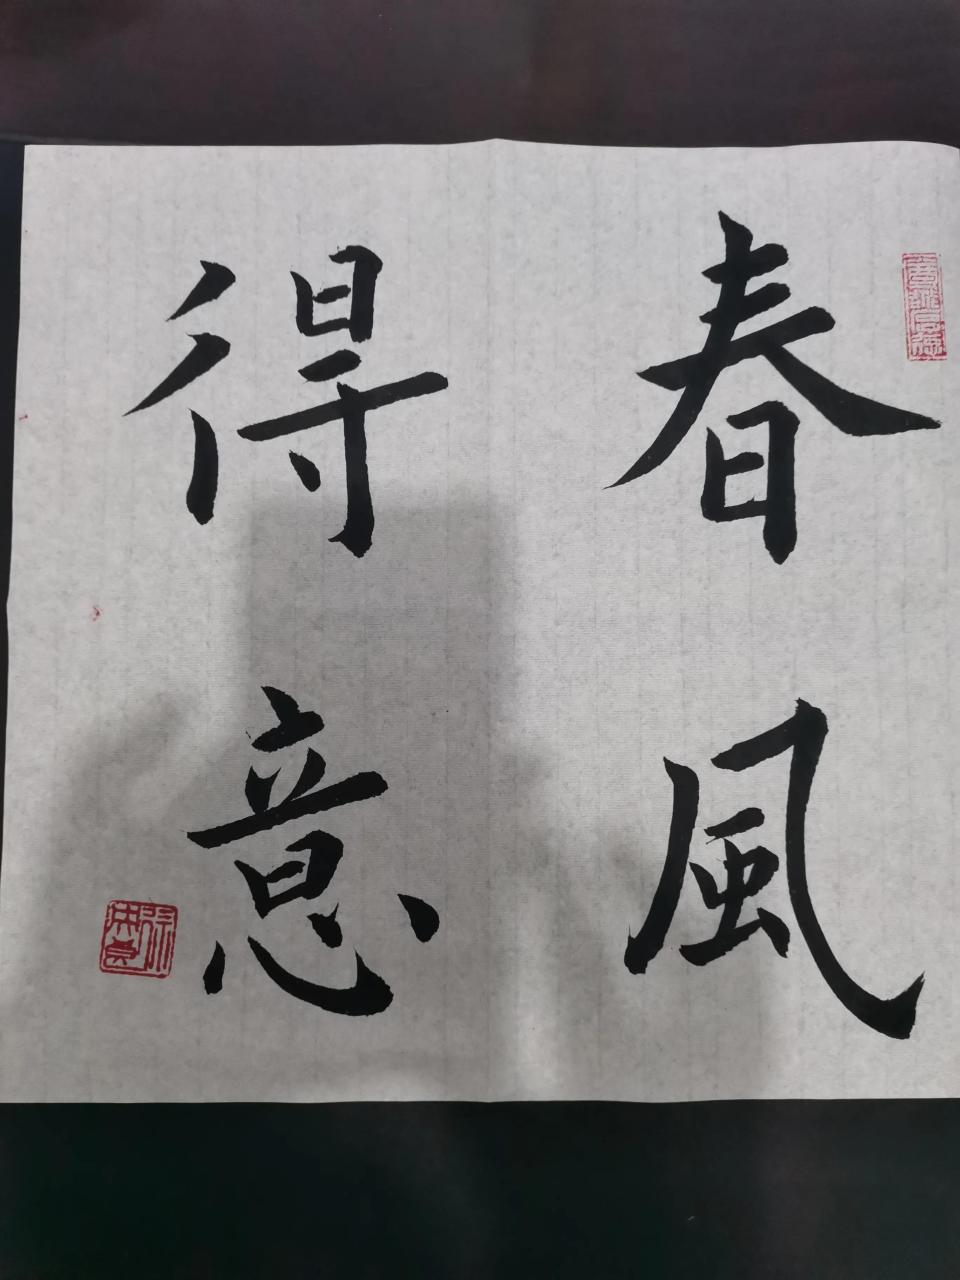 春風
得意